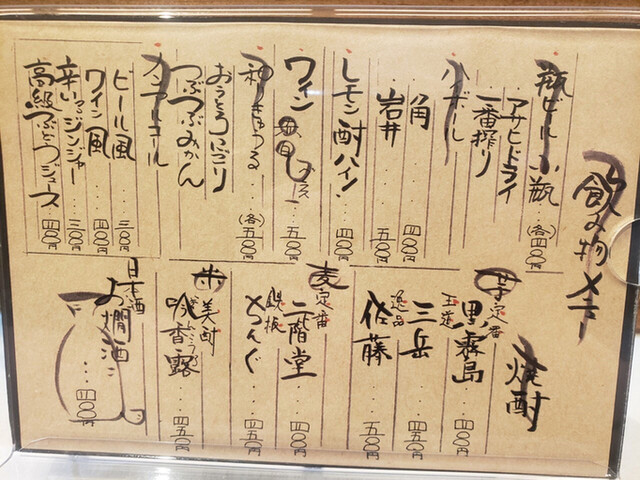 飲み物メニュー
瓶ビール 小瓶 (各)四〇〇円
アサヒドライ
一番搾り
ハイボール
角 … 四〇〇円
岩井 … 五〇〇円
レモン酎ハイ … 四〇〇円
ワイン … 五〇〇円
おうとろにごり
つぶつぶみかん
(各)五〇〇円
ノンアルコール
ビール風 … 三〇〇円
ワイン風 … 四〇〇円
辛いジンジャー … 三〇〇円
高級つぶつぶジュース 四〇〇円
焼酎
芋
定番 黒霧島 … 四〇〇円
三岳 … 四五〇円
逸品 佐藤 … 五〇〇円
麦
定番 二階堂 … 四〇〇円
鉄板 … 四五〇円
米
美酎
吟香露 … 四五〇円
日本酒
お燗酒 … 四〇〇円